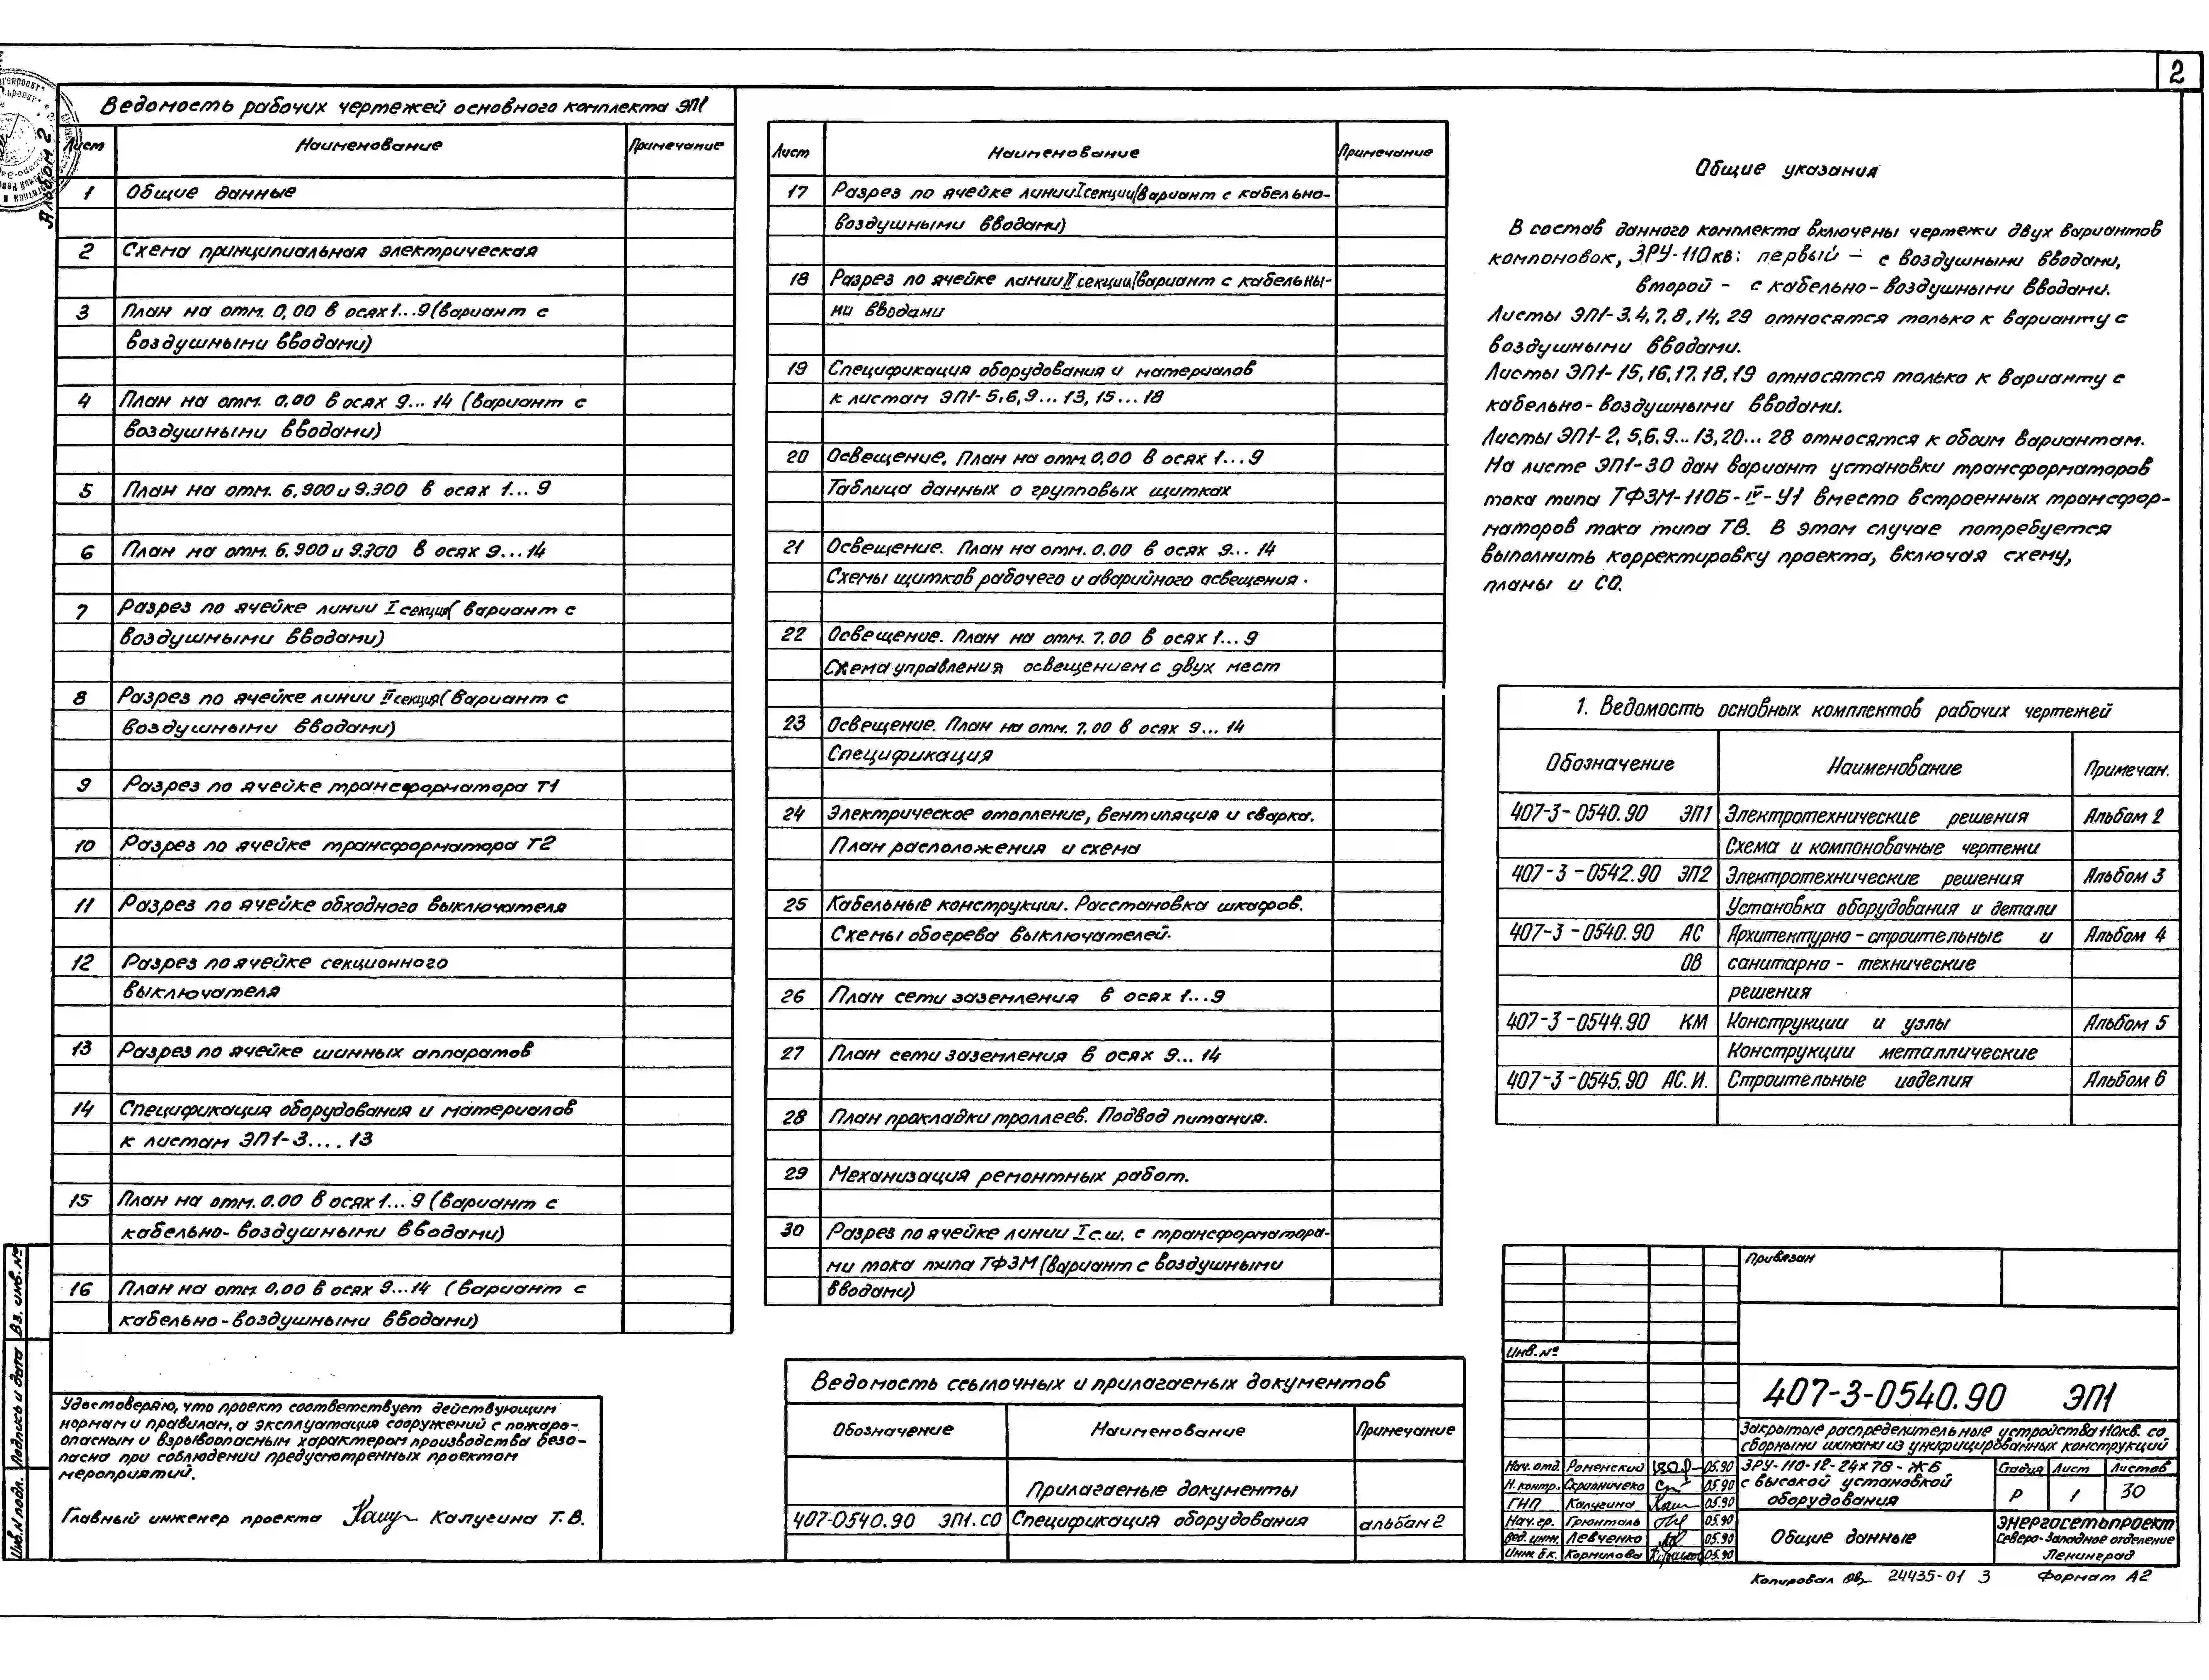 2
Альбом 2
Ведомость рабочих чертежей основного комплекта ЭП1
Лист Наименование Примечание
1 Общие данные
2 Схема принципиальная электрическая
3 План на отм. 0,00 в осях 1...9 (вариант с
воздушными вводами)
4 План на отм. 0.00 в осях 9...14 (вариант с
воздушными вводами)
5 План на отм. 6.900 и 9.300 в осях 1...9
6 План на отм. 6.900 и 9.300 в осях 9...14
7 Разрез по ячейке линии I секция (вариант с
воздушными вводами)
8 Разрез по ячейке линии II секция (вариант с
воздушными вводами)
9 Разрез по ячейке трансформатора Т1
10 Разрез по ячейке трансформатора Т2
11 Разрез по ячейке обходного выключателя
12 Разрез по ячейке секционного
выключателя
13 Разрез по ячейке шинных аппаратов
14 Спецификация оборудования и материалов
к листам ЭП1-3....13
15 План на отм. 0.00 в осях 1...9 (вариант с
кабельно-воздушными вводами)
16 План на отм. 0,00 в осях 9...14 (вариант с
кабельно-воздушными вводами)
Лист Наименование Примечание
17 Разрез по ячейке линии I секции (вариант с кабельно-
воздушными вводами)
18 Разрез по ячейке линии II секции (вариант с кабельны-
ми вводами
19 Спецификация оборудования и материалов
к листам ЭП1-5,6,9...13,15...18
20 Освещение. План на отм. 0,00 в осях 1...9
Таблица данных о групповых щитках
21 Освещение. План на отм. 0.00 в осях 9...14
Схемы щитков рабочего и аварийного освещения.
22 Освещение. План на отм. 7.00 в осях 1...9
Схема управления освещением с двух мест
23 Освещение. План на отм. 7.00 в осях 9...14
Спецификация
24 Электрическое отопление, вентиляция и сварка.
План расположения и схема
25 Кабельные конструкции. Расстановка шкафов.
Схемы обогрева выключателей.
26 План сети заземления в осях 1...9
27 План сети заземления в осях 9...14
28 План прокладки троллеев. Подвод питания.
29 Механизация ремонтных работ.
30 Разрез по ячейке линии I с.ш. с трансформатора-
ми тока типа ТФЗМ (вариант с воздушными
вводами)
Общие указания
В состав данного комплекта включены чертежи двух вариантов
компоновок, ЗРУ-110кв: первый - с воздушными вводами,
второй - с кабельно-воздушными вводами.
Листы ЭП1-3,4,7,8,14,29 относятся только к варианту с
воздушными вводами.
Листы ЭП1-15,16,17,18,19 относятся только к варианту с
кабельно-воздушными вводами.
Листы ЭП1-2,5,6,9...13,20...28 относятся к обоим вариантам.
На листе ЭП1-30 дан вариант установки трансформаторов
тока типа ТФЗМ-110Б-IV-У1 вместо встроенных трансфор-
маторов тока типа ТВ. В этом случае потребуется
выполнить корректировку проекта, включая схему,
планы и СО.
1. Ведомость основных комплектов рабочих чертежей
Обозначение Наименование Примечан.
407-3-0540.90 ЭП1 Электротехнические решения Альбом 2
Схема и компоновочные чертежи
407-3-0542.90 ЭП2 Электротехнические решения Альбом 3
Установка оборудования и детали
407-3-0540.90 АС Архитектурно-строительные и Альбом 4
ОВ санитарно-технические
решения
407-3-0544.90 КМ Конструкции и узлы Альбом 5
Конструкции металлические
407-3-0545.90 АС.И. Строительные изделия Альбом 6
Удостоверяю, что проект соответствует действующим
нормам и правилам, а эксплуатация сооружений с пожаро-
опасным и взрывоопасным характером производства безо-
пасна при соблюдении предусмотренных проектом
мероприятий.
Главный инженер проекта Калугина Т.В.
Ведомость ссылочных и прилагаемых документов
Обозначение Наименование Примечание
Прилагаемые документы
407-0540.90 ЭП1.СО Спецификация оборудования альбом 2
Привязан
Инв.№
407-3-0540.90 ЭП1
Закрытые распределительные устройства 110кв. со
сборными шинами из унифицированных конструкций
Нач. отд. Роменский 05.90
Н. контр. Скрипничеко 05.90
ГИП Калугина 05.90
Нач. гр. Грюнталь 05.90
Вод. инж. Левченко 05.90
Инж. IIк. Корнилова 05.90
ЗРУ-110-12-24х78-ЖБ
с высокой установкой
оборудования
Стадия Лист Листов
Р 1 30
Общие данные
ЭНЕРГОСЕТЬПРОЕКТ
Северо-Западное отделение
Ленинград
Копировал 24435-01 3 Формат А2
Инв.N подл. Подпись и дата Вз. инв. №